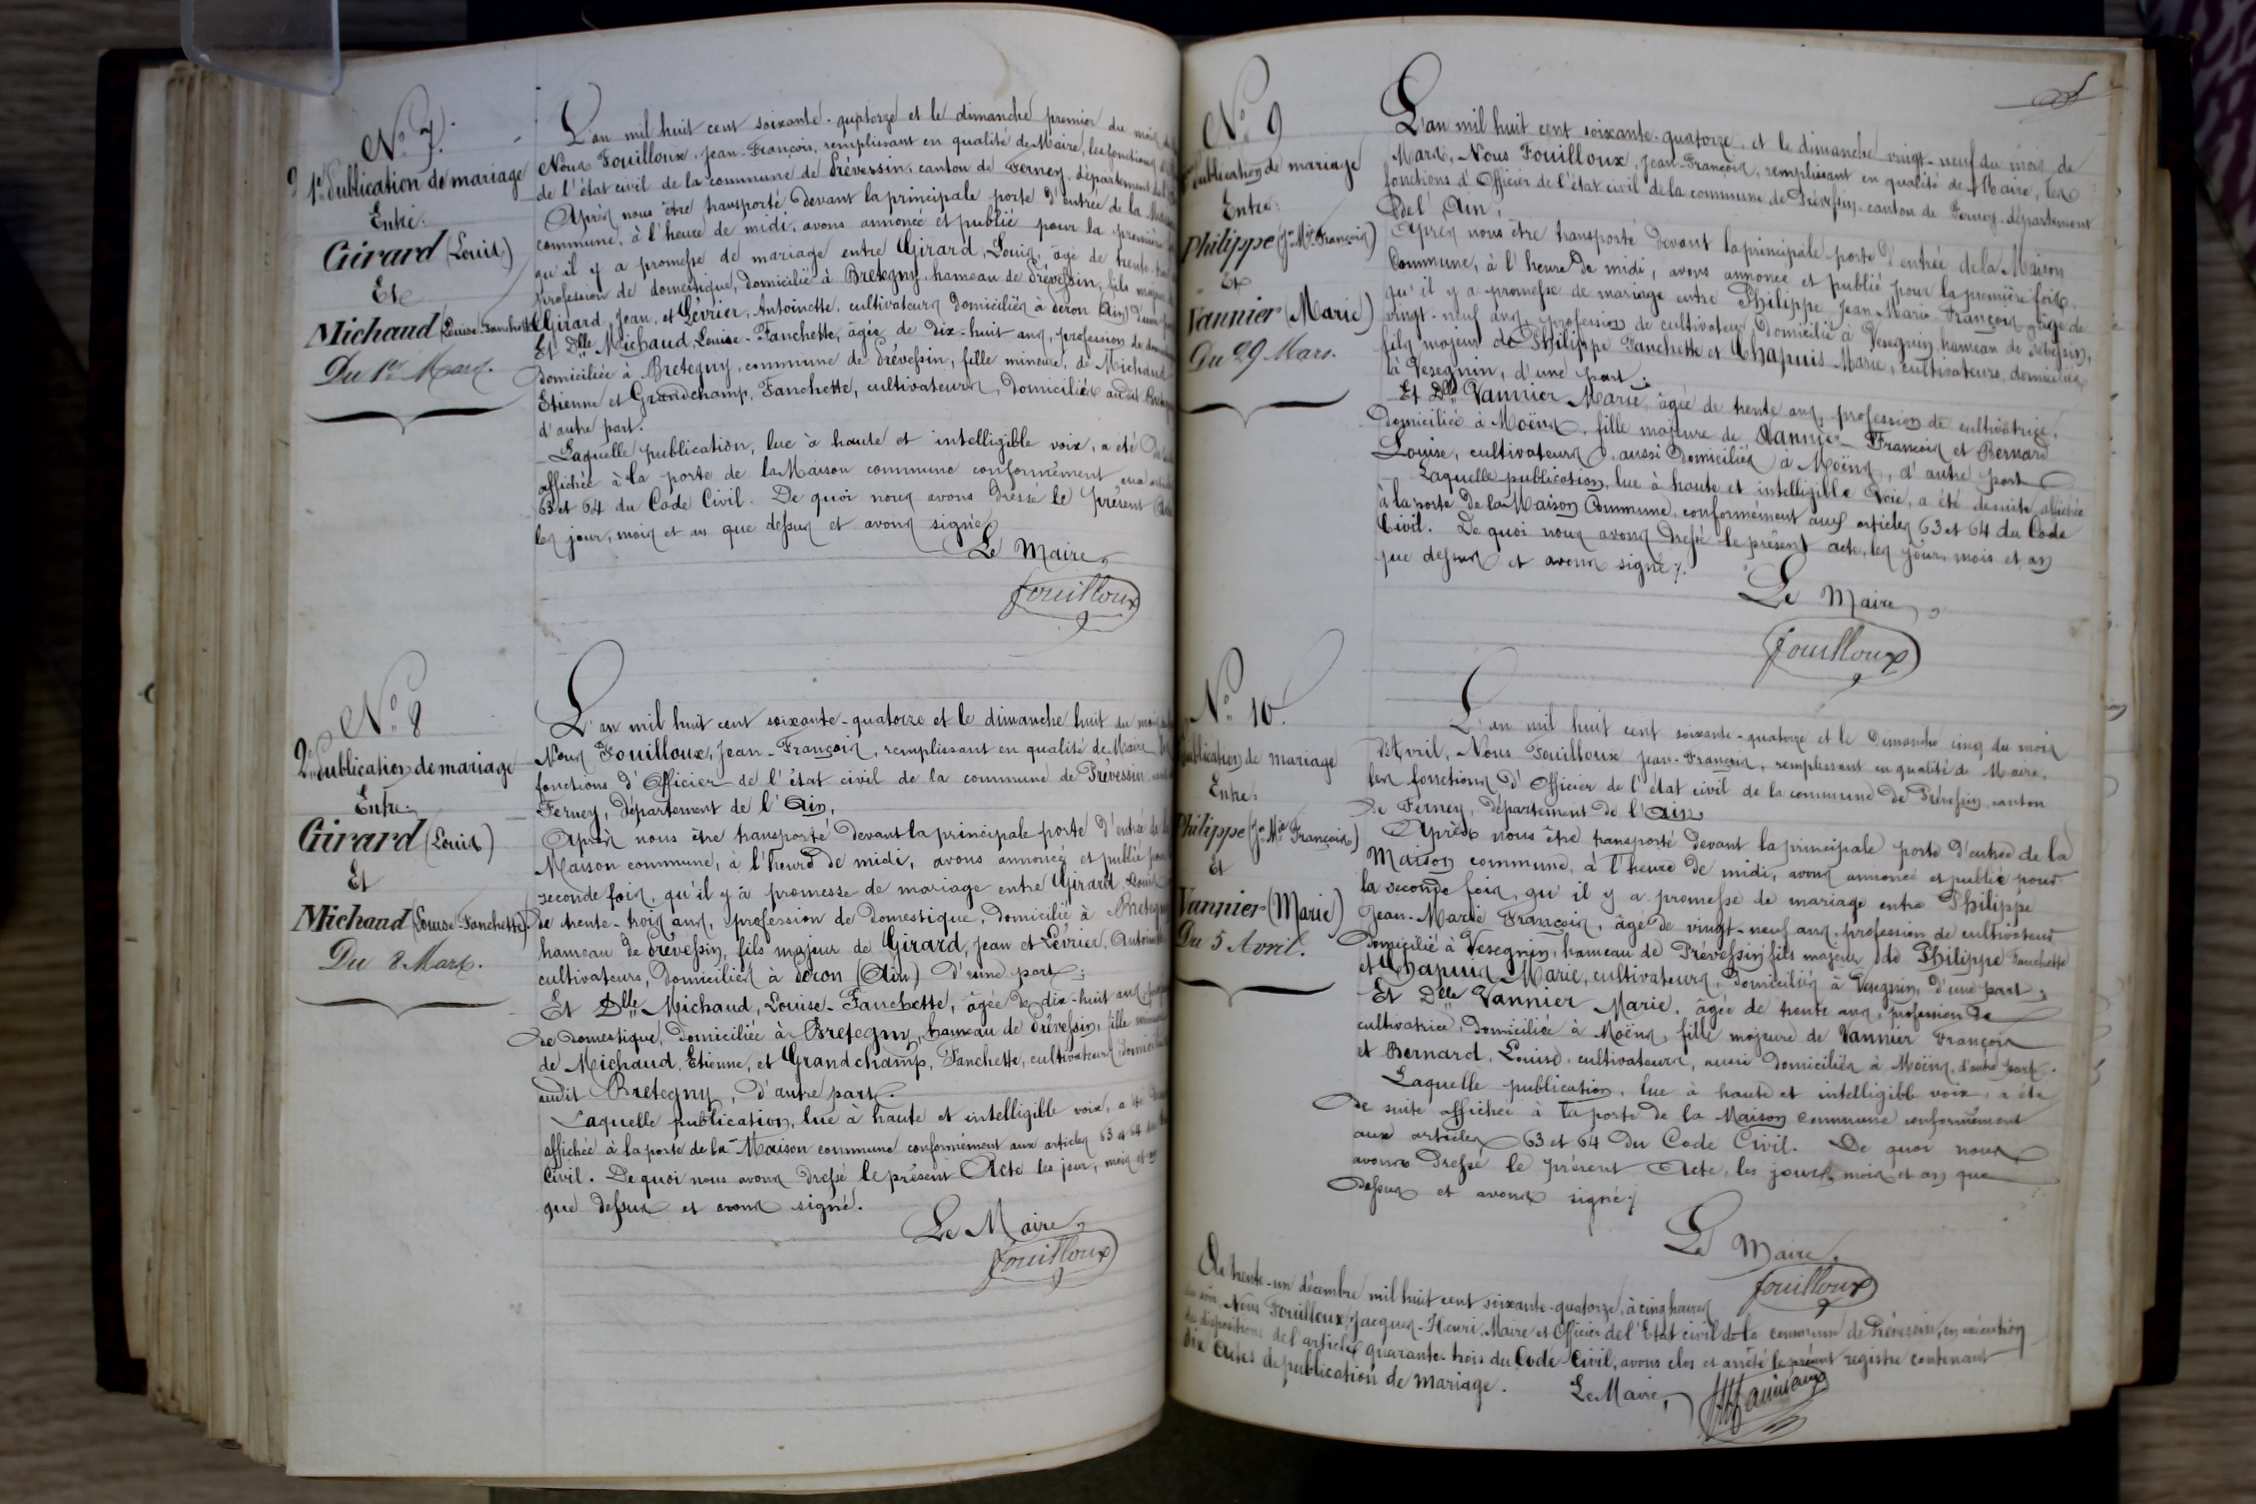 N° 7.
1e Publication de mariage
Entre:
Girard (Louis)
Et
Michaud (Louise-Fanchette)
Du 1er Mars.
L'an mil huit cent soixante-quatorze et le dimanche premier du mois de
Nous Fouilloux, Jean-François, remplissant en qualité de Maire, les fonctions
de l'état civil de la commune de Prévessin, canton de Ferney, département de
Après nous être transporté devant la principale porte d'entrée de la Maison
commune, à l'heure de midi, avons annoncé et publié pour la première
qu'il y a promesse de mariage entre Girard, Louis, âgé de trente-
profession de domestique, domicilié à Bretegny hameau de Prévessin, fils majeur
Girard, Jean, et Lévrier, Antoinette, cultivateurs domiciliés à (Ain) d'une part
Et Dlle Michaud Louise-Fanchette, âgée de dix-huit ans, profession de
domiciliée à Bretegny, commune de Prévessin, fille mineure, de Michaud
Etienne et Grandchamp, Fanchette, cultivateurs, domiciliés audit
d'autre part.
Laquelle publication, lue à haute et intelligible voix, a été
affichée à la porte de la Maison commune conformément aux
63 et 64 du Code Civil. De quoi nous avons dressé le présent
les jour, mois et an que dessus et avons signé
Le Maire,
Fouilloux
N° 8
2e Publication de mariage
Entre:
Girard (Louis)
Et
Michaud (Louise-Fanchette).
Du 8 Mars.
L'an mil huit cent soixante-quatorze et le dimanche huit du mois
Nous Fouilloux, Jean-François, remplissant en qualité de Maire les
fonctions d'Officier de l'état civil de la commune de Prévessin
Ferney, département de l'Ain,
Après nous être transporté devant la principale porte d'entrée de la
Maison commune, à l'heure de midi, avons annoncé et publié pour
seconde fois, qu'il y a promesse de mariage entre Girard, Louis
de trente-trois ans, profession de domestique, domicilié à Bretegny
hameau de Prévessin, fils majeur de Girard, Jean et Lévrier, Antoinette
cultivateurs, domiciliés à (Ain) d'une part;
Et Dlle Michaud, Louise-Fanchette, âgée de dix-huit ans,
de domestique, domiciliée à Bretegny, hameau de Prévessin, fille
de Michaud, Etienne, et Grandchamp, Fanchette, cultivateurs
audit Bretegny, d'autre part.
Laquelle publication, lue à haute et intelligible voix, a été
affichée à la porte de la Maison commune conformément aux articles 63 et 64 du
Civil. De quoi nous avons dressé le présent Acte les jour, mois et an
que dessus et avons signé.
Le Maire,
Fouilloux
N° 9
Publication de mariage
Entre:
Philippe (Jn Mie François)
Et
Vannier (Marie)
Du 29 Mars.
L'an mil huit cent soixante-quatorze, et le dimanche vingt-neuf du mois de
Mars, Nous Fouilloux, Jean-François, remplissant en qualité de Maire, les
fonctions d'Officier de l'état civil de la commune de Prévessin, canton de Ferney, département
de l'Ain,
Après nous être transporté devant la principale porte d'entrée de la Maison
Commune, à l'heure de midi, avons annoncé et publié pour la première fois,
qu'il y a promesse de mariage entre Philippe Jean Marie François âgé de
vingt-neuf ans, profession de cultivateur domicilié à Vesegnin hameau de Prévessin,
fils majeur de Philippe Fanchette et Chapuis Marie, cultivateurs domiciliés
à Vesegnin, d'une part;
Et Dlle Vannier Marie, âgée de trente ans, profession de cultivatrice,
domiciliée à Moëns, fille majeure de Vannier François et Bernard
Louise, cultivateurs, aussi domiciliés à Moëns, d'autre part
Laquelle publication, lue à haute et intelligible voie, a été de suite affichée
à la porte de la Maison Commune, conformément aux articles 63 et 64 du Code
Civil. De quoi nous avons dressé le présent acte, les jour, mois et an
que dessus et avons signé.
Le Maire,
Fouilloux
N° 10.
Publication de mariage
Entre:
Philippe (Jn Mie François)
Et
Vannier (Marie)
Du 5 Avril.
L'an mil huit cent soixante-quatorze et le Dimanche cinq du mois
d'Avril, Nous Fouilloux Jean-François, remplissant en qualité de Maire,
les fonctions d'Officier de l'état civil de la commune de Prévessin, canton
de Ferney, département de l'Ain
Après nous être transporté devant la principale porte d'entrée de la
Maison commune, à l'heure de midi, avons annoncé et publié pour
la seconde fois, qu'il y a promesse de mariage entre Philippe
Jean-Marie François, âgé de vingt-neuf ans, profession de cultivateur
domicilié à Vesegnin, hameau de Prévessin, fils majeur de Philippe Fanchette
et Chapuis Marie, cultivateurs, domiciliés à Vesegnin, d'une part;
Et Dlle Vannier Marie, âgée de trente ans, profession de
cultivatrice, domiciliée à Moëns, fille majeure de Vannier François
et Bernard, Louise, cultivateurs, aussi domiciliés à Moëns, d'autre part.
Laquelle publication, lue à haute et intelligible voix, a été
de suite affichée à la porte de la Maison Commune conformément
aux articles 63 et 64 du Code Civil. De quoi nous
avons dressé le présent Acte, les jour, mois et an que
dessus et avons signé
Le Maire,
Fouilloux
Ce trente-un décembre mil huit cent soixante-quatorze, à cinq heures
du soir, Nous Fouilloux, Jacques-Henri, Maire et Officier de l'Etat civil de la commune de Prévessin, en exécution
des dispositions de l'article quarante-trois du Code Civil, avons clos et arrêté le présent registre contenant
dix Actes de publication de mariage.
Le Maire,